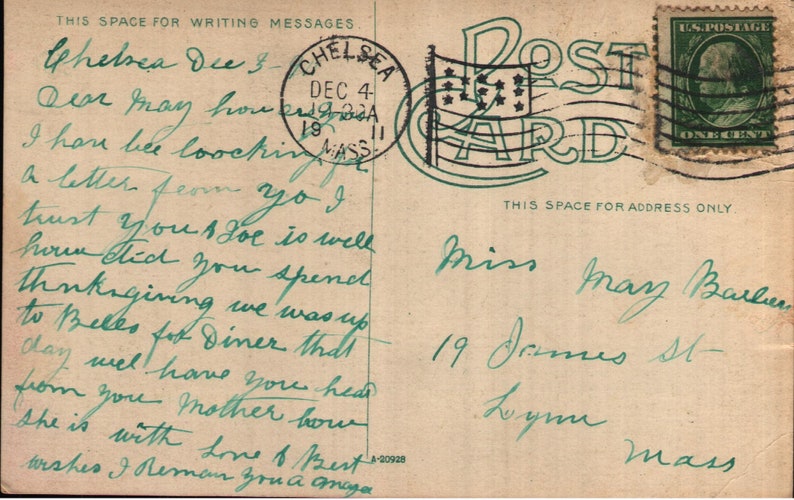 THIS SPACE FOR WRITING MESSAGES.
Chelsea Dec 3
Dear May how are you
I han bee loocking for
a letter from yo I
trust you & Joe is well
how did you spend
thnksgiving we was up
to Bells for Diner that
day well have you head
from you Mother how
she is with Love & Best
wishes I Reman you a
CHELSEA
DEC 4
19 11
MASS.
POST CARD
U.S. POSTAGE
ONE CENT
THIS SPACE FOR ADDRESS ONLY.
Miss May
19 James St
Lynn
Mass
A-20928